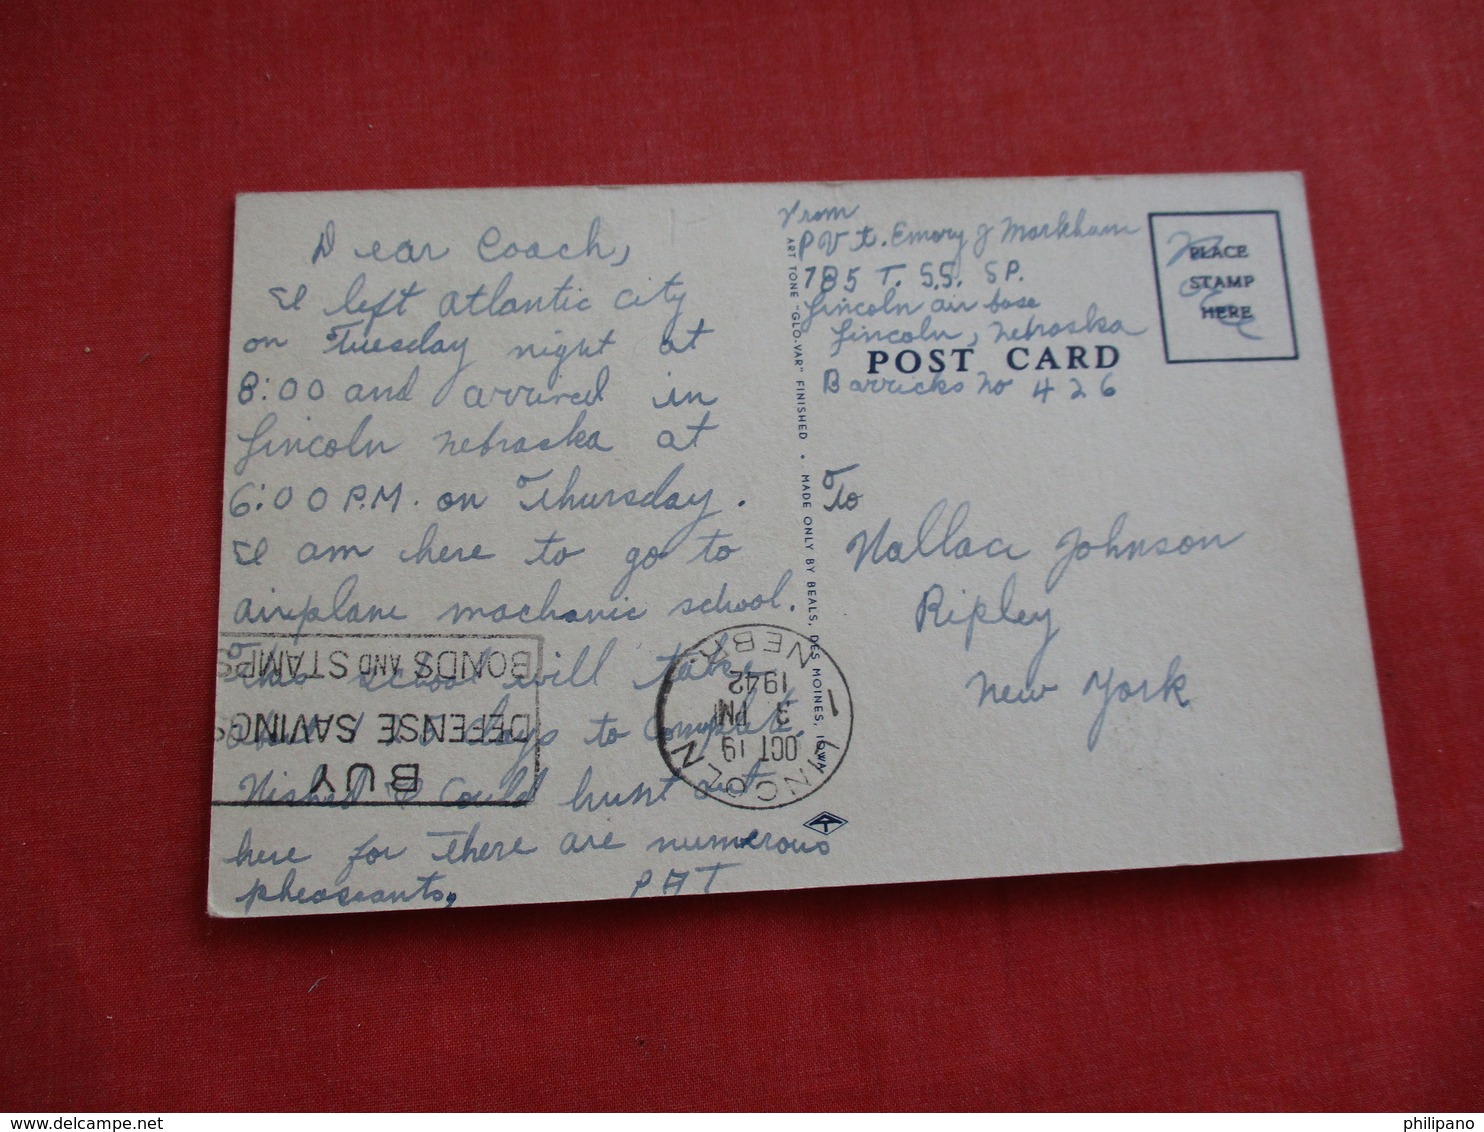 Dear Coach,
I left atlantic city
on Tuesday night at
8:00 and arrived in
Lincoln nebraska at
6:00 P.M. on Thursday.
I am here to go to
airplane machanic school.
This school will take
about days to complete.
Wished I could hunt out
here for there are numerous
pheasants,
PAT
From
Pvt. Emory J Markham
785 T. S.S. SP.
Lincoln air base
Lincoln, nebraska
Barricks no 426
POST CARD
PLACE
STAMP
HERE
To
Wallace Johnson
Ripley
new york
ART TONE "GLO-VAR" FINISHED • MADE ONLY BY BEALS, DES MOINES, IOWA
LINCOLN
OCT 19
3 PM
1942
NEBR.
1
BUY
DEFENSE SAVINGS
BONDS AND STAMPS
philipano